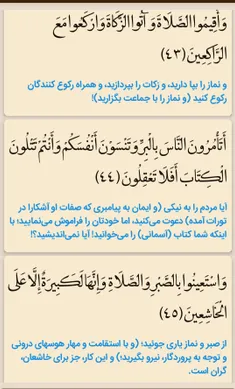 وَأَقِيمُوا الصَّلَاةَ وَآتُوا الزَّكَاةَ وَارْكَعُوا مَعَ
الرَّاكِعِينَ ﴿٤٣﴾
و نماز را بپا دارید، و زکات را بپردازید، و همراه رکوع کنندگان
رکوع کنید (و نماز را با جماعت بگزارید)!
أَتَأْمُرُونَ النَّاسَ بِالْبِرِّ وَتَنْسَوْنَ أَنْفُسَكُمْ وَأَنْتُمْ تَتْلُونَ
الْكِتَابَ أَفَلَا تَعْقِلُونَ ﴿٤٤﴾
آیا مردم را به نیکی (و ایمان به پیامبری که صفات او آشکارا در
تورات آمده) دعوت می‌کنید، اما خودتان را فراموش می‌نمایید؛ با
اینکه شما کتاب (آسمانی) را می‌خوانید! آیا نمی‌اندیشید؟!
وَاسْتَعِينُوا بِالصَّبْرِ وَالصَّلَاةِ وَإِنَّهَا لَكَبِيرَةٌ إِلَّا عَلَى
الْخَاشِعِينَ ﴿٤٥﴾
از صبر و نماز یاری جوئید؛ (و با استقامت و مهار هوسهای درونی
و توجه به پروردگار، نیرو بگیرید؛) و این کار، جز برای خاشعان،
گران است.